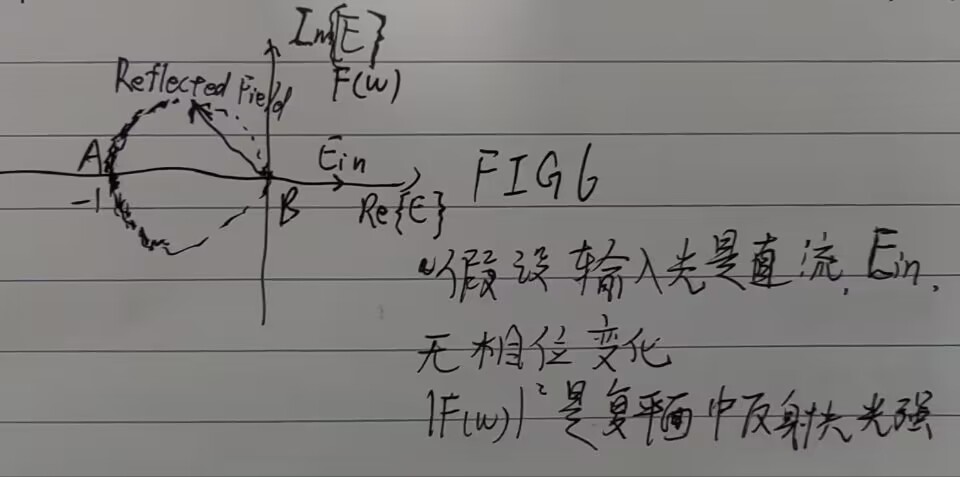 Im{E}
F(w)
Reflected Field
A
-1
B
Ein
Re{E}
FIG6
假设输入光是直流, Ein,
无相位变化
|F(w)|² 是复平面中反射光强